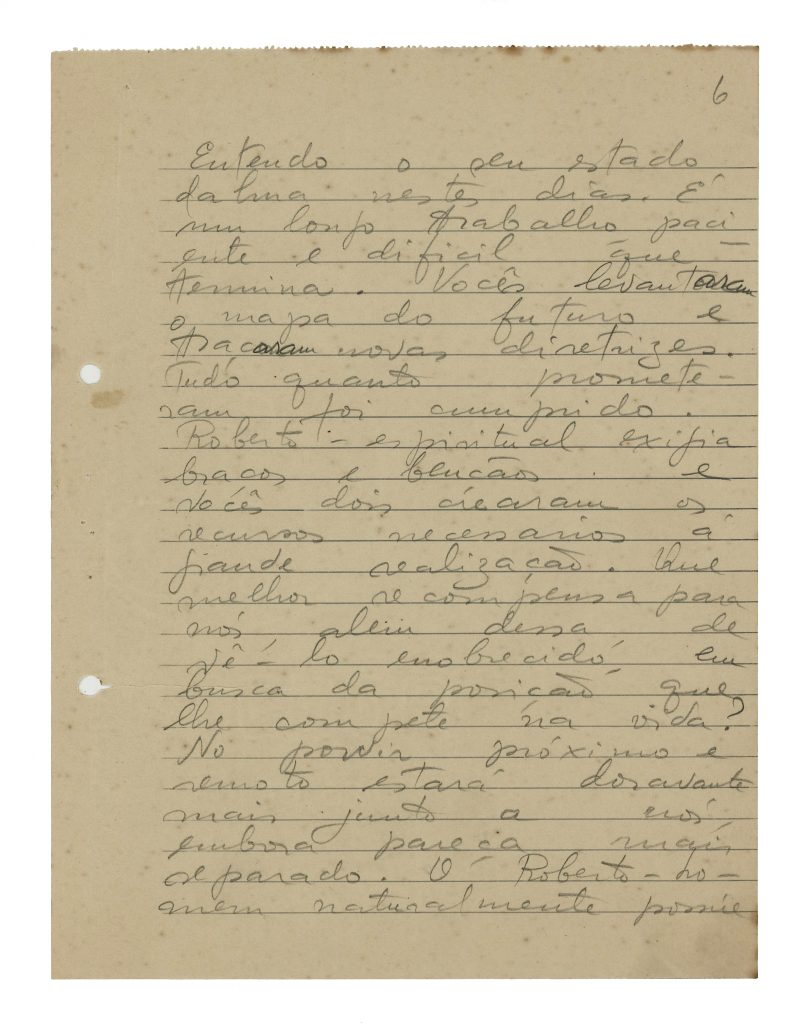 6
Entendo o seu estado
dalma nestes dias. É
um longo trabalho paci
ente e dificil que
termina. Vocês levantaram
o mapa do futuro e
traçaram novas diretrizes.
Tudo quanto promete-
ram foi cumprido.
Roberto-espiritual exigia
braços e bençãos e
vocês dois crearam os
recursos necessarios á
grande realização. Que
melhor recompensa para
nós, alem dessa de
vê-lo enobrecido, em
busca da posição que
lhe compete na vida?
No porvir próximo e
remoto estará doravante
mais junto a nós
embora pareça mais
separado. O Roberto-ho-
mem naturalmente possúe